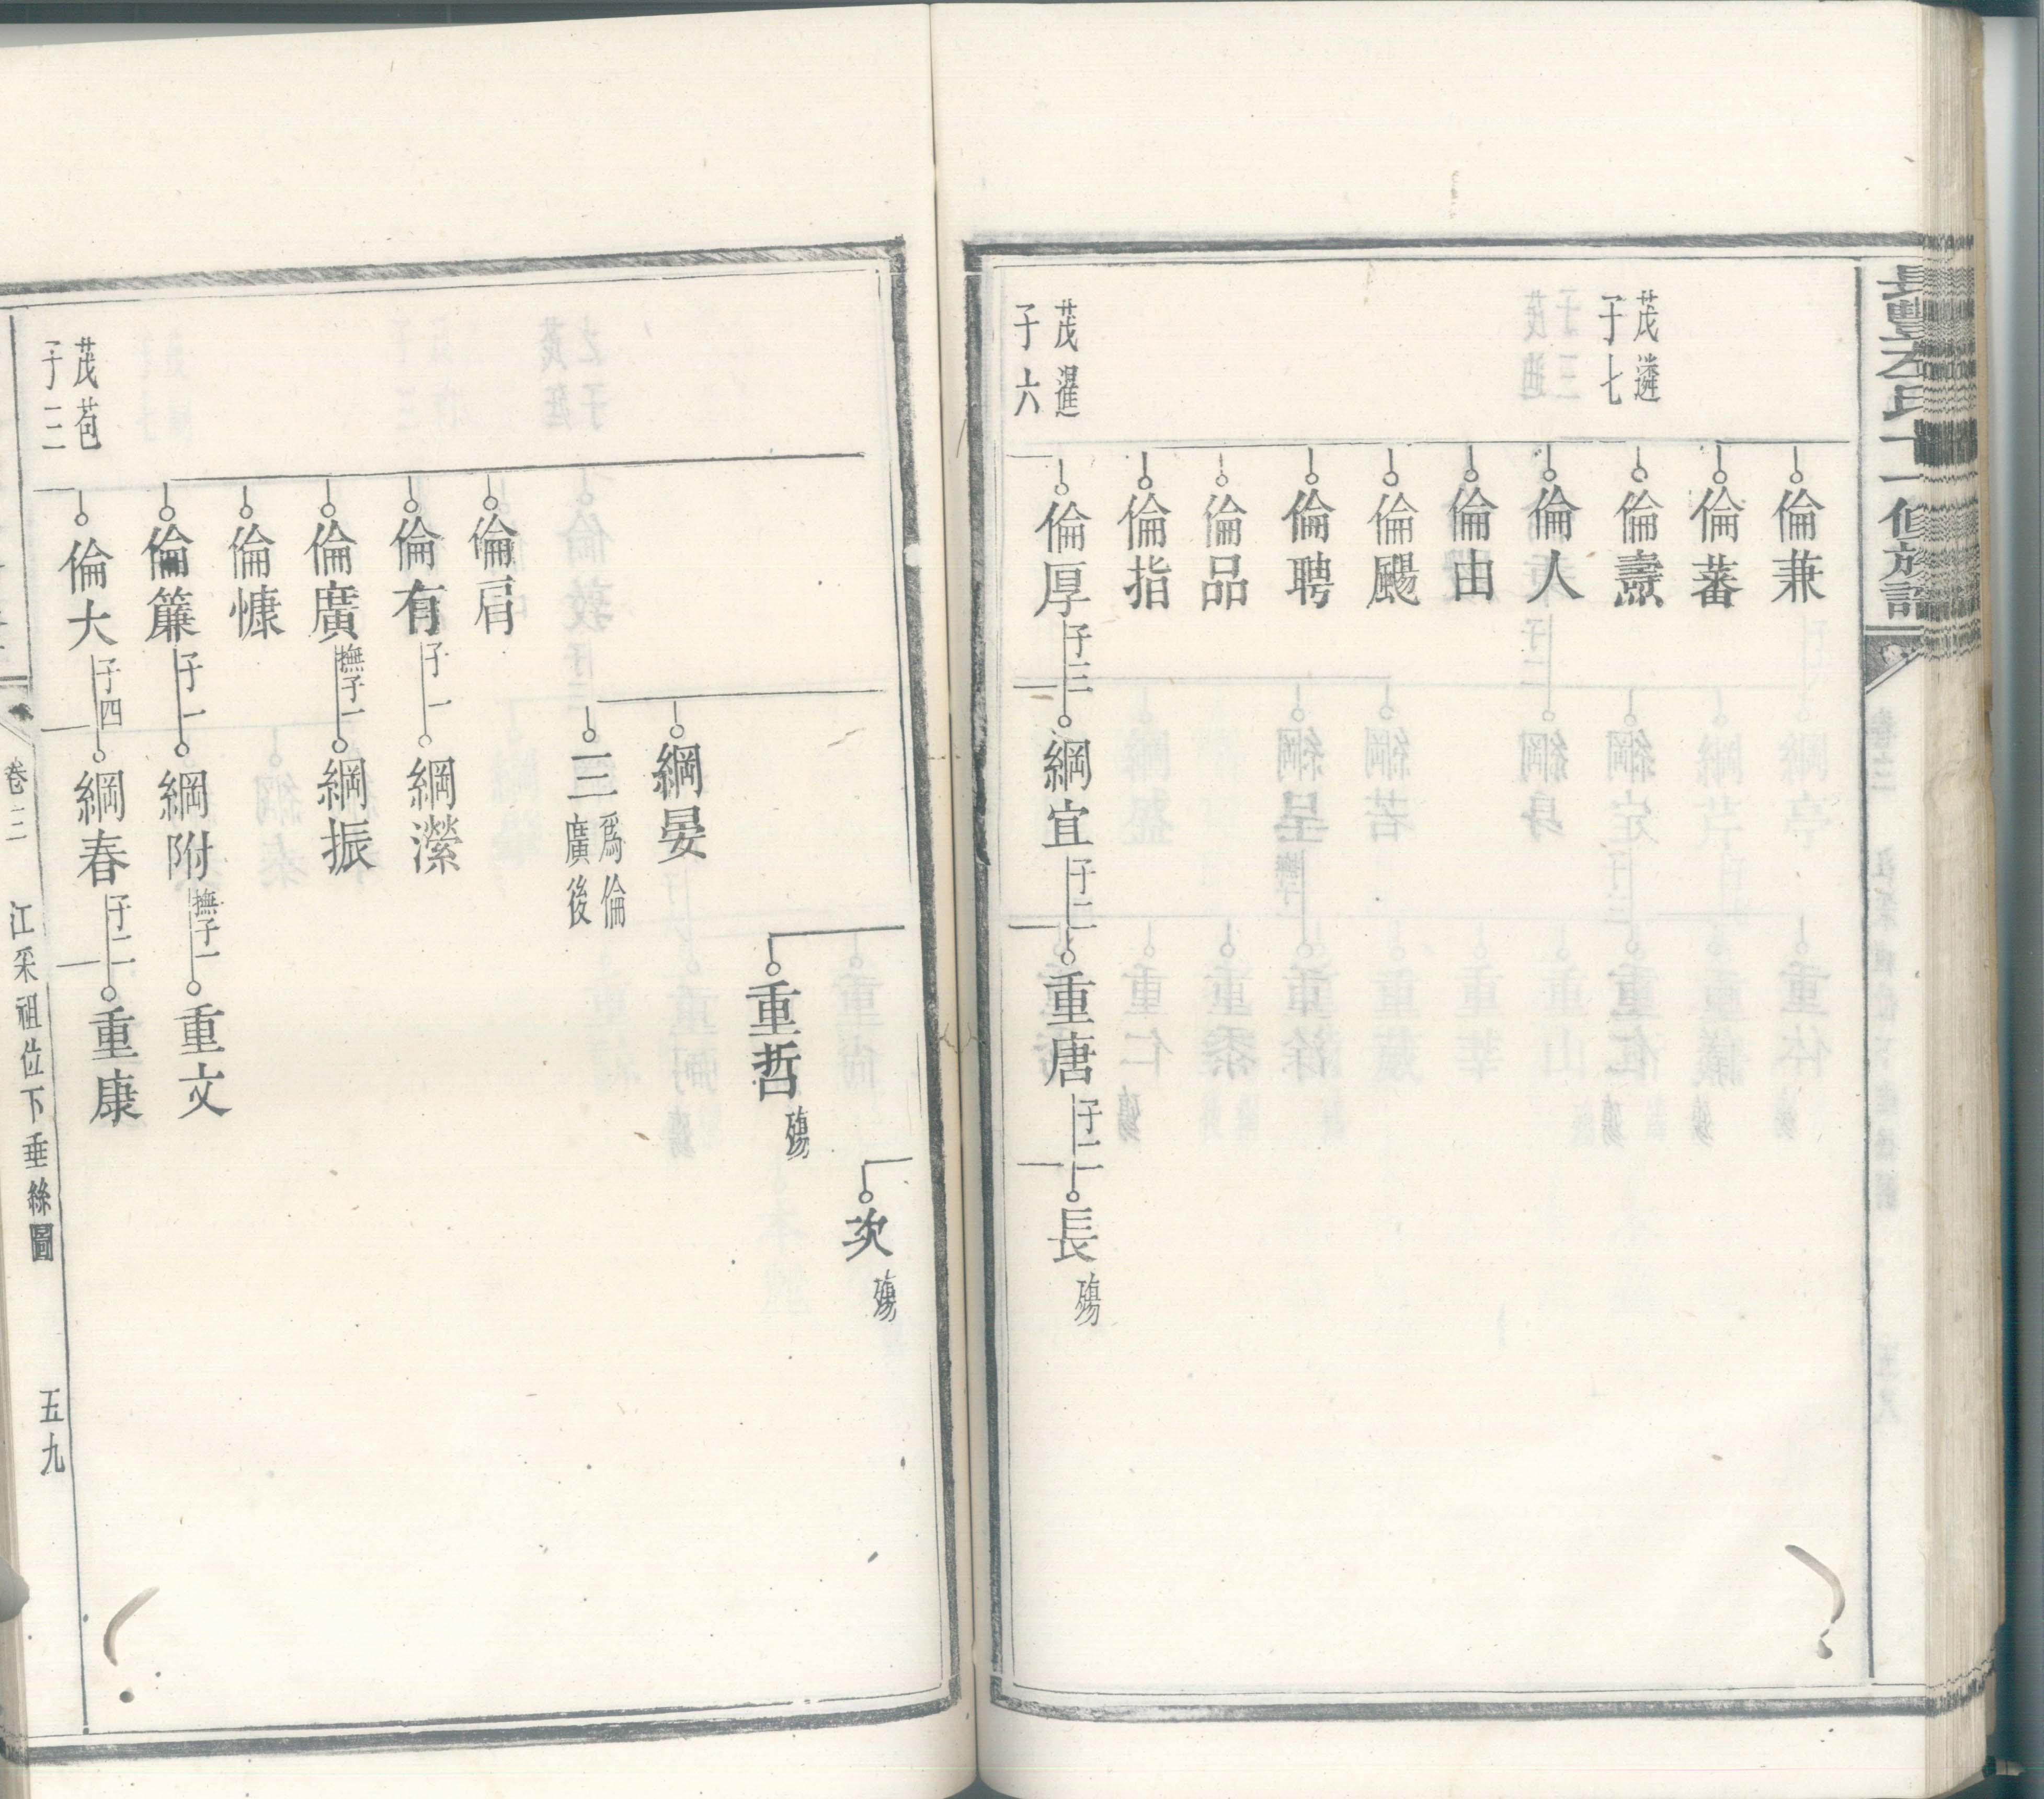 長豐左氏十一修族譜
茂遴
子七
倫兼
倫蕃
倫燾
倫人
倫由
倫颺
倫聘
倫品
倫指
茂暹
子六
倫厚
子二
綱宜
子二
重唐
子二
長
殤
次
殤
重哲
殤
綱晏
三
爲倫
廣後
倫肩
倫有
子一
綱瀠
倫廣
撫子一
綱振
倫慷
倫簾
子一
綱附
撫子一
重文
茂苞
子二
倫大
子四
綱春
子二
重康
卷三
江采祖位下垂絲圖
五九